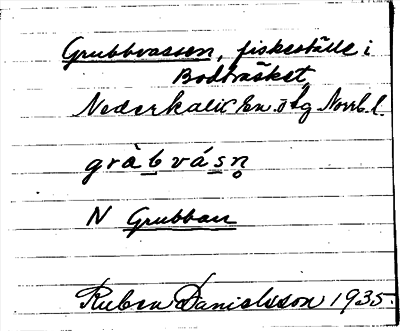 Grubbvassen, fiskeställe i
Bodträsket
Nederkalix sn. o tg Norrb. l.
gràbvásn̥
N Grubban
Ruben Danielsson 1935.